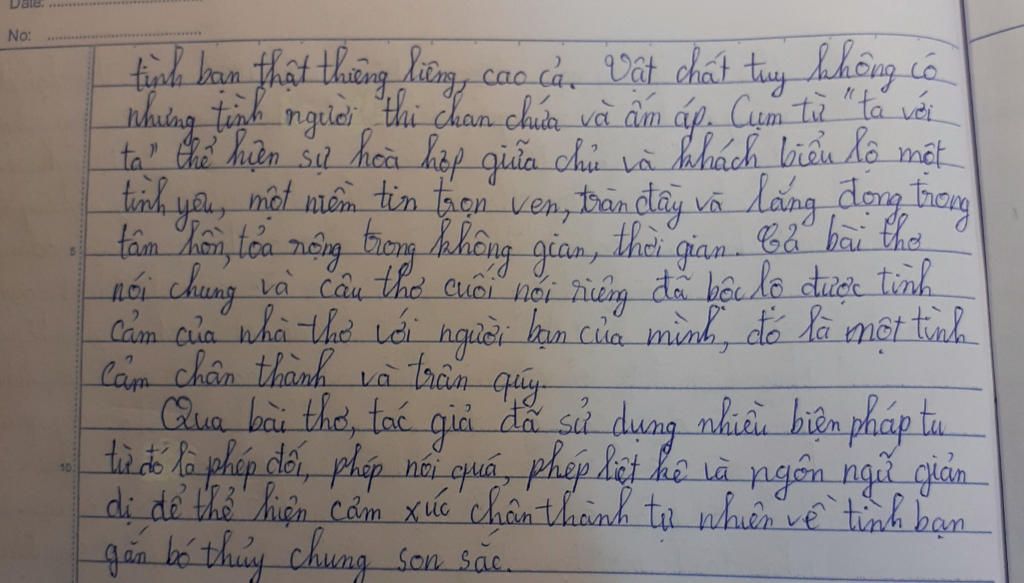 Date:
No:
tình bạn thật thiêng liêng, cao cả. Vật chất tuy không có
nhưng tình người thì chan chứa và ấm áp. Cụm từ "ta với
ta" thể hiện sự hoà hợp giữa chủ và khách biểu lộ một
tình yêu, một niềm tin trọn vẹn, tràn đầy và lắng đọng trong
tâm hồn, tỏa rộng trong không gian, thời gian. Cả bài thơ
5
nói chung và câu thơ cuối nói riêng đã bộc lộ được tình
cảm của nhà thơ với người bạn của mình, đó là một tình
cảm chân thành và trân quý.
Qua bài thơ, tác giả đã sử dụng nhiều biện pháp tu
từ đó là phép đối, phép nói quá, phép liệt kê và ngôn ngữ giản
10
dị để thể hiện cảm xúc chân thành tự nhiên về tình bạn
gắn bó thủy chung son sắc.